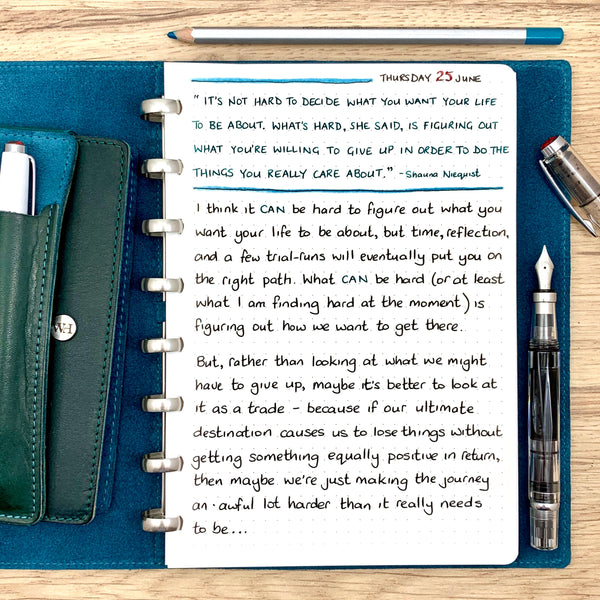 THURSDAY 25 JUNE
" IT'S NOT HARD TO DECIDE WHAT YOU WANT YOUR LIFE
TO BE ABOUT. WHAT'S HARD, SHE SAID, IS FIGURING OUT
WHAT YOU'RE WILLING TO GIVE UP IN ORDER TO DO THE
THINGS YOU REALLY CARE ABOUT." - Shauna Niequist
I think it CAN be hard to figure out what you
want your life to be about, but time, reflection,
and a few trial-runs will eventually put you on
the right path. What CAN be hard (or at least
what I am finding hard at the moment) is
figuring out how we want to get there.
But, rather than looking at what we might
have to give up, maybe it's better to look at
it as a trade - because if our ultimate
destination causes us to lose things without
getting something equally positive in return,
then maybe we're just making the journey
an awful lot harder than it really needs
to be...
WH